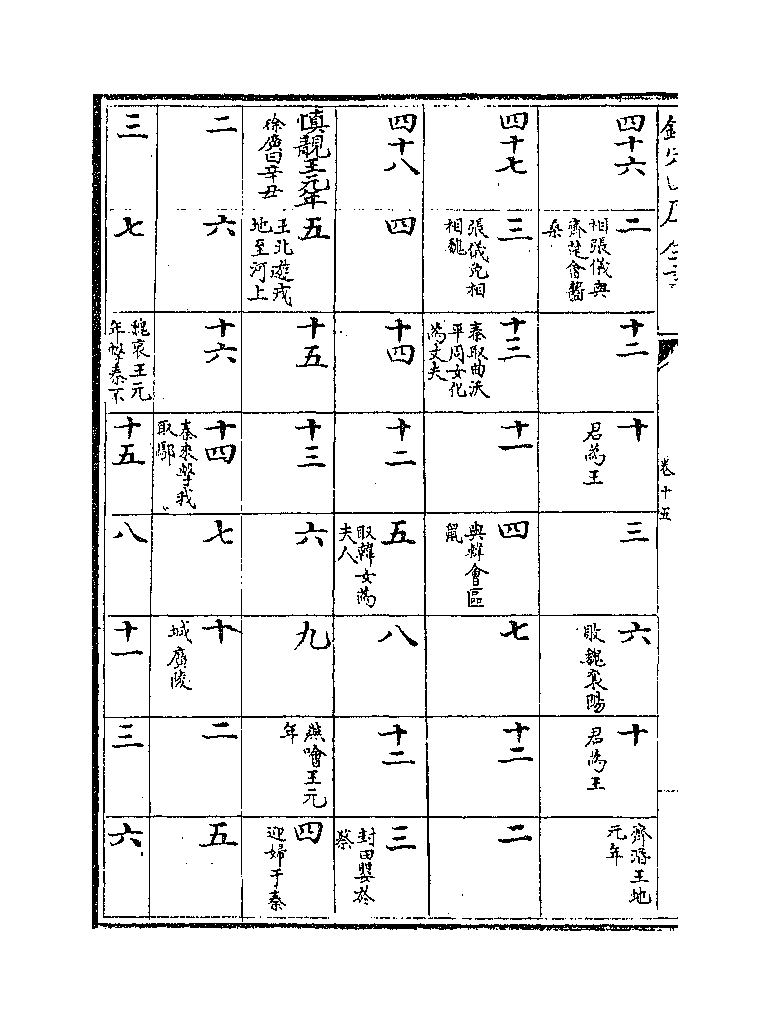 卷十五
四十六
二
相張儀與
齊楚會齧
桑
十二
十
君為王
三
六
敗魏襄陽
十
君為王
齊湣王地
元年
四十七
三
張儀免相
相魏
十三
秦取曲沃
平周女化
為丈夫
十一
四
與韓會區
鼠
七
十二
二
四十八
四
十四
十二
五
取韓女為
夫人
八
十二
三
封田嬰於
蔡
慎靚王元年
徐廣曰辛丑
五
王北遊戎
地至河上
十五
十三
六
九
燕噲王元
年
四
迎婦于秦
二
六
十六
十四
秦來擊我
取鄢
七
十
城廣陵
二
五
三
七
魏哀王元
年擊秦不
十五
八
十一
三
六